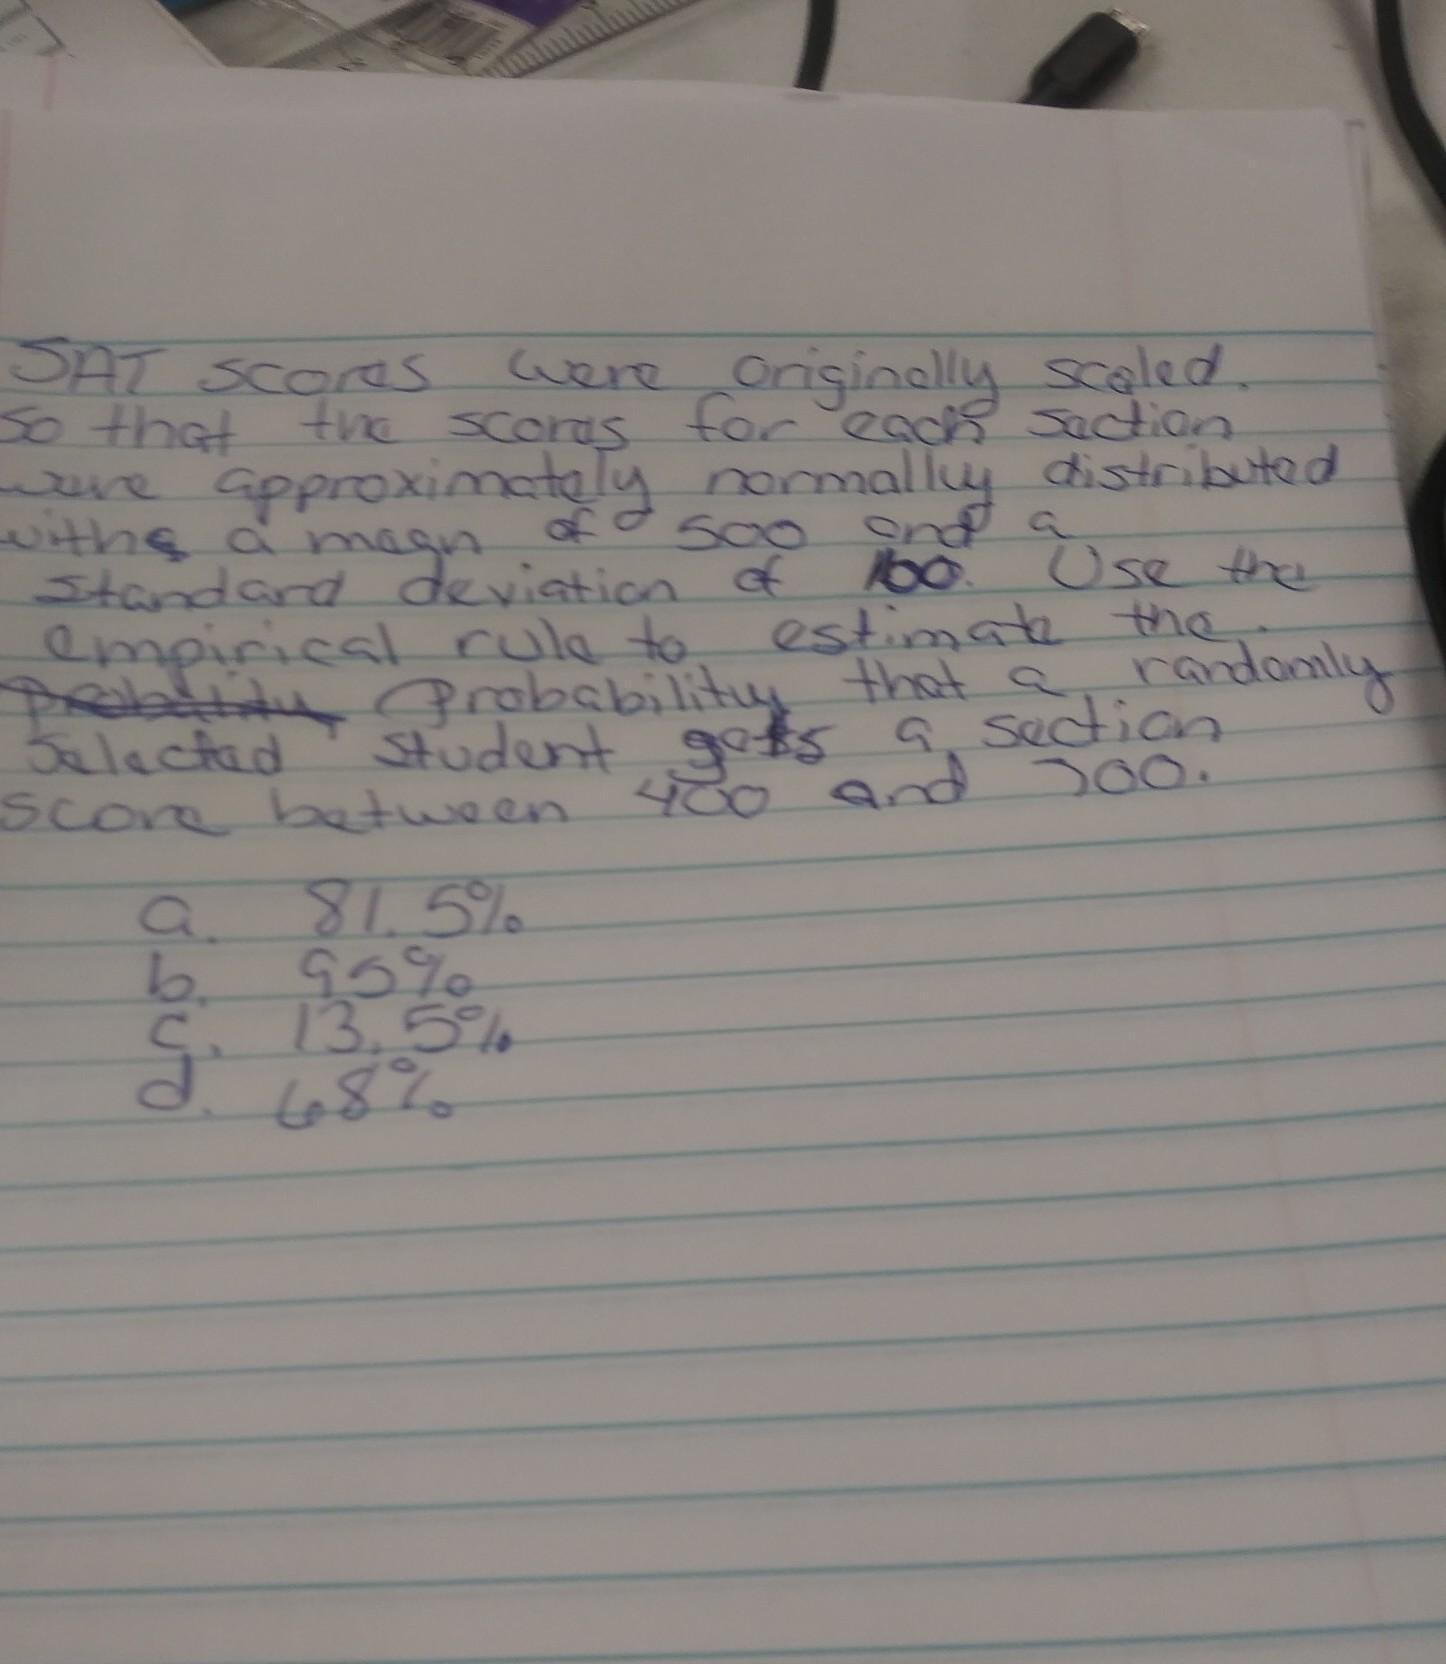 SAT scores were originally scaled.
So that the scores for each section
were approximately normally distributed
with a mean of 500 and a
standard deviation of 100. Use the
empirical rule to estimate the.
Probability that a randomly
Selected student gets a section
score between 400 and 700.
a. 81.5%
b. 95%
c. 13.5%
d. 68%